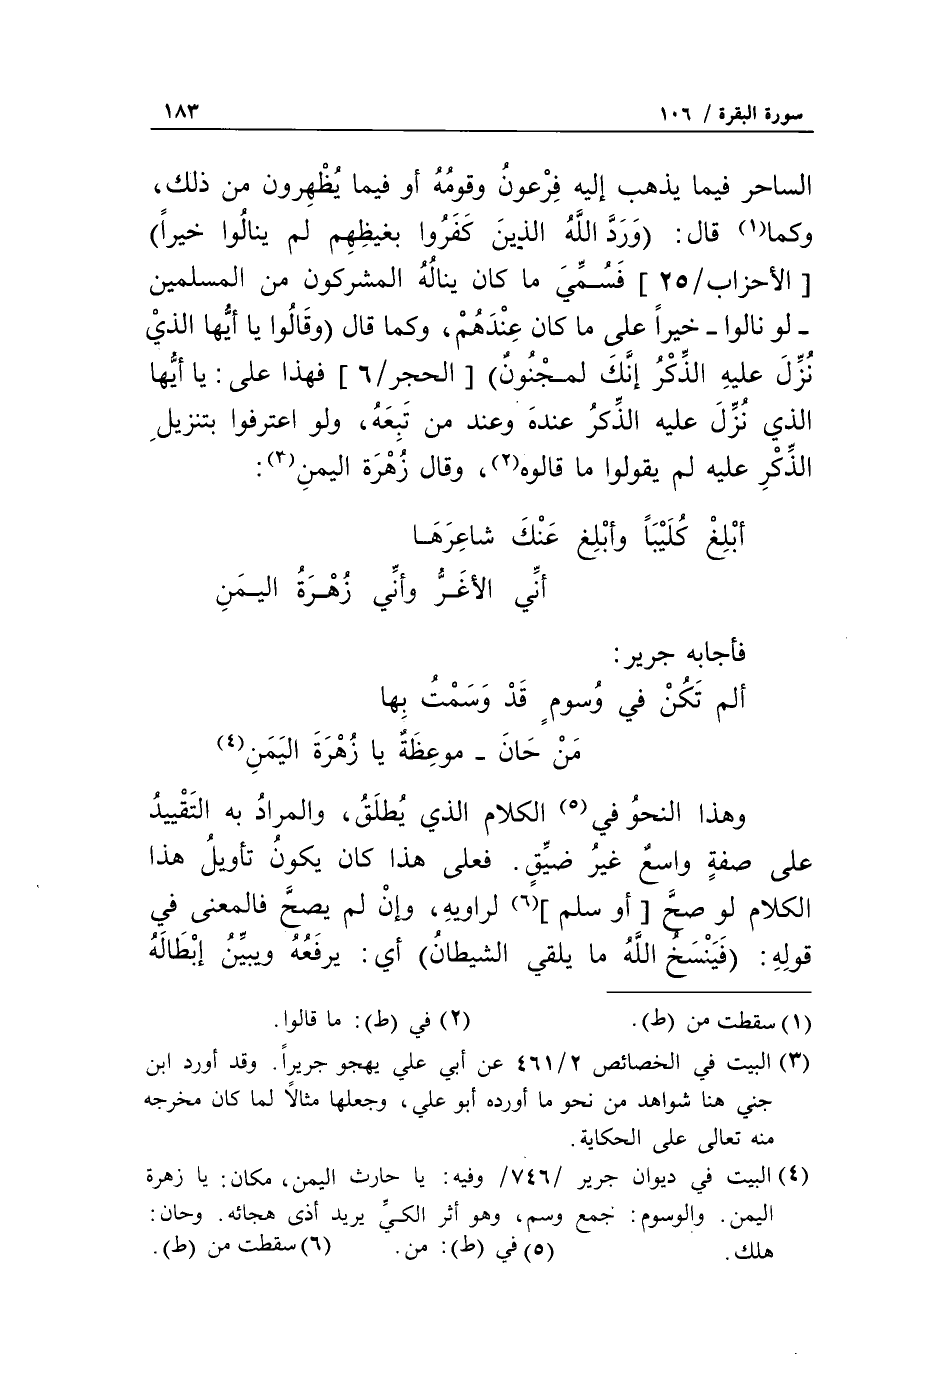 سورة البقرة / ١٠٦ ١٨٣
الساحر فيما يذهب إليه فِرْعونُ وقومُهُ أو فيما يُظْهِرون من ذلك،
وكما(١) قال: (وَرَدَّ اللَّهُ الذينَ كَفَرُوا بغيظِهِم لم ينالُوا خيراً)
[ الأحزاب/٢٥ ] فَسُمِّيَ ما كان ينالُهُ المشركون من المسلمين
ـ لو نالوا ـ خيراً على ما كان عِنْدَهُمْ، وكما قال (وقَالُوا يا أيُّها الذيْ
نُزِّلَ عليهِ الذِّكْرُ إنَّكَ لمجْنُونٌ) [ الحجر/٦ ] فهذا على: يا أيُّها
الذي نُزِّلَ عليه الذِّكرُ عندهَ وعند من تَبِعَهُ، ولو اعترفوا بتنزيلِ
الذِّكْرِ عليه لم يقولوا ما قالوه(٢)، وقال زُهْرَة اليمنِ(٣):
أبْلِغْ كُلَيْبَاً وأبْلِغ عَنْكَ شاعِرَهَا
أنِّي الأغَرُّ وأنِّي زُهْرَةُ اليمَنِ
فأجابه جرير:
ألم تَكُنْ في وُسومٍ قَدْ وَسَمْتُ بِها
مَنْ حَانَ ـ موعِظَةٌ يا زُهْرَةَ اليَمَنِ(٤)
وهذا النحوُ في(٥) الكلام الذي يُطلَقُ، والمرادُ به التَقْييدُ
على صفةٍ واسعٌ غيرُ ضيِّقٍ. فعلى هذا كان يكونُ تأويلُ هذا
الكلام لو صحَّ [ أو سلم ](٦) لراويهِ، وإنْ لم يصحَّ فالمعنى في
قولِهِ: (فَيَنْسَخُ اللَّهُ ما يلقي الشيطانُ) أي: يرفَعُهُ ويبيِّنُ إبْطَالَهُ
(١) سقطت من (ط). (٢) في (ط): ما قالوا.
(٣) البيت في الخصائص ٤٦١/٢ عن أبي علي يهجو جريراً. وقد أورد ابن
جني هنا شواهد من نحو ما أورده أبو علي، وجعلها مثالًا لما كان مخرجه
منه تعالى على الحكاية.
(٤) البيت في ديوان جرير /٧٤٦/ وفيه: يا حارث اليمن، مكان: يا زهرة
اليمن. والوسوم: جمع وسم، وهو أثر الكيِّ يريد أذى هجائه. وحان:
هلك. (٥) في (ط): من. (٦) سقطت من (ط).